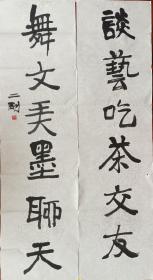 談藝吃茶交友
舞文弄墨聊天
二剛